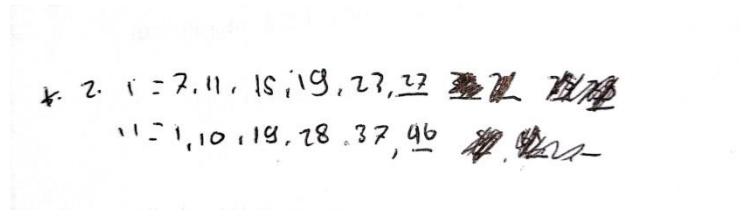 *. 2. i = 7, 11, 15, 19, 23, 27
ii = 1, 10, 19, 28, 37, 46